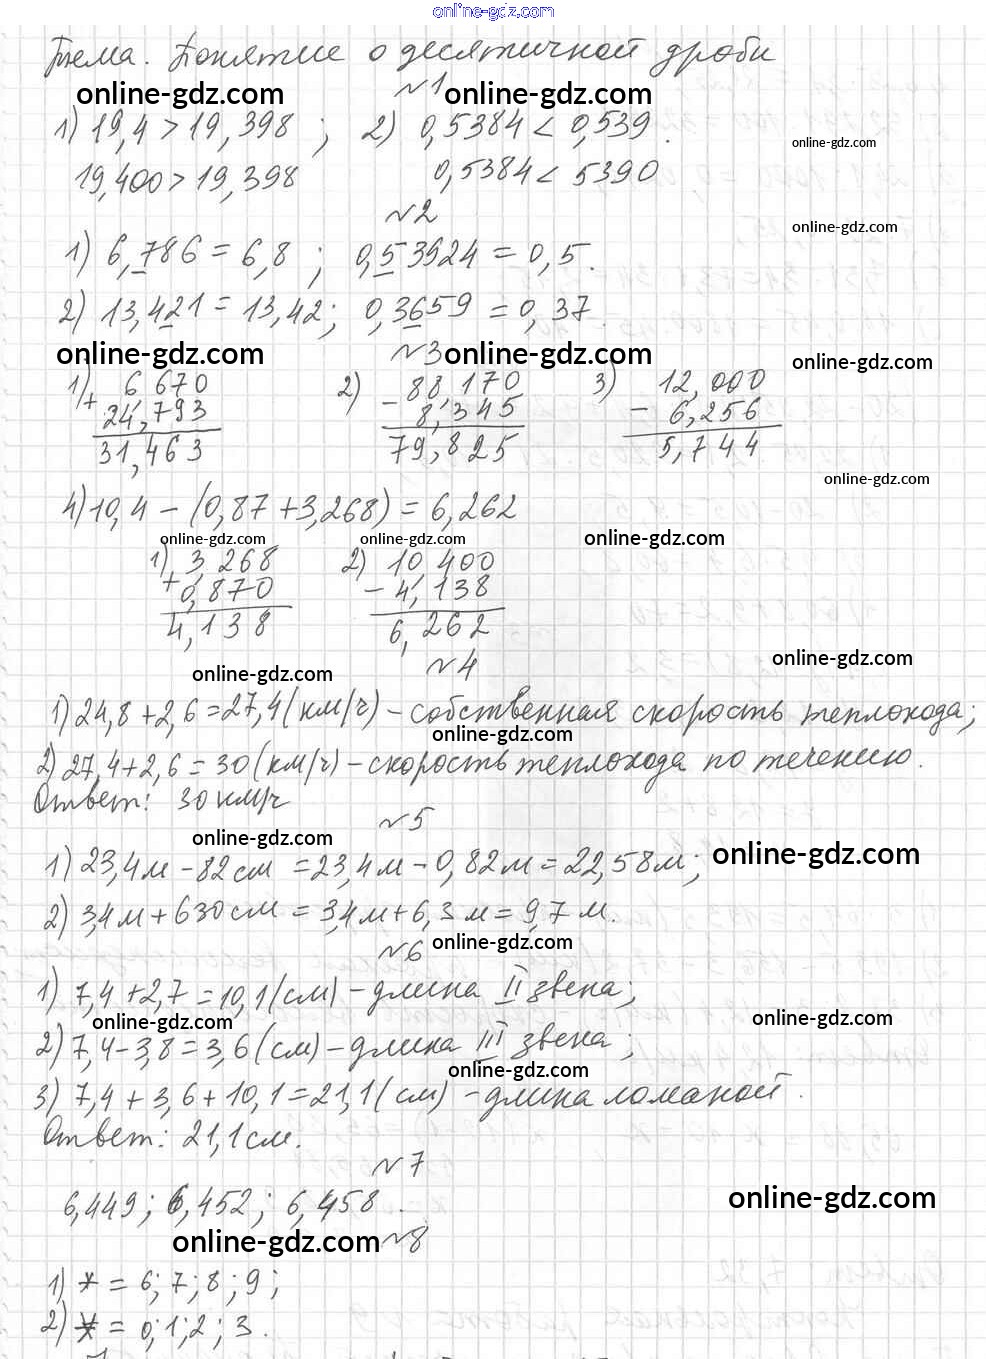 online-gdz.com
Тема. Понятие о десятичной дроби
online-gdz.com №1 online-gdz.com
1) 19,4 > 19,398 ; 2) 0,5384 < 0,539.
online-gdz.com
19,400 > 19,398 0,5384 < 5390
№2
online-gdz.com
1) 6,786 = 6,8 ; 0,53924 = 0,5.
2) 13,421 = 13,42; 0,3659 = 0,37.
online-gdz.com №3 online-gdz.com
online-gdz.com
1) 6,670 2) 88,170 3) 12,000
+ 24,793 - 8,345 - 6,256
31,463 79,825 5,744
online-gdz.com
4) 10,4 - (0,87 + 3,268) = 6,262
online-gdz.com online-gdz.com online-gdz.com
1) 3,268 2) 10,400
+ 0,870 - 4,138
4,138 6,262
online-gdz.com №4 online-gdz.com
1) 24,8 + 2,6 = 27,4 (км/ч) - собственная скорость теплохода;
online-gdz.com
2) 27,4 + 2,6 = 30 (км/ч) - скорость теплохода по течению.
Ответ: 30 км/ч
№5
online-gdz.com
1) 23,4м - 82см = 23,4м - 0,82м = 22,58м; online-gdz.com
2) 3,4м + 630см = 3,4м + 6,3м = 9,7м.
№6 online-gdz.com
1) 7,4 + 2,7 = 10,1 (см) - длина II звена;
online-gdz.com online-gdz.com
2) 7,4 - 3,8 = 3,6 (см) - длина III звена;
online-gdz.com
3) 7,4 + 3,6 + 10,1 = 21,1 (см) - длина ломаной.
Ответ: 21,1 см.
№7
6,449; 6,452; 6,458. online-gdz.com
online-gdz.com №8
1) * = 6; 7; 8; 9;
2) * = 0; 1; 2; 3.